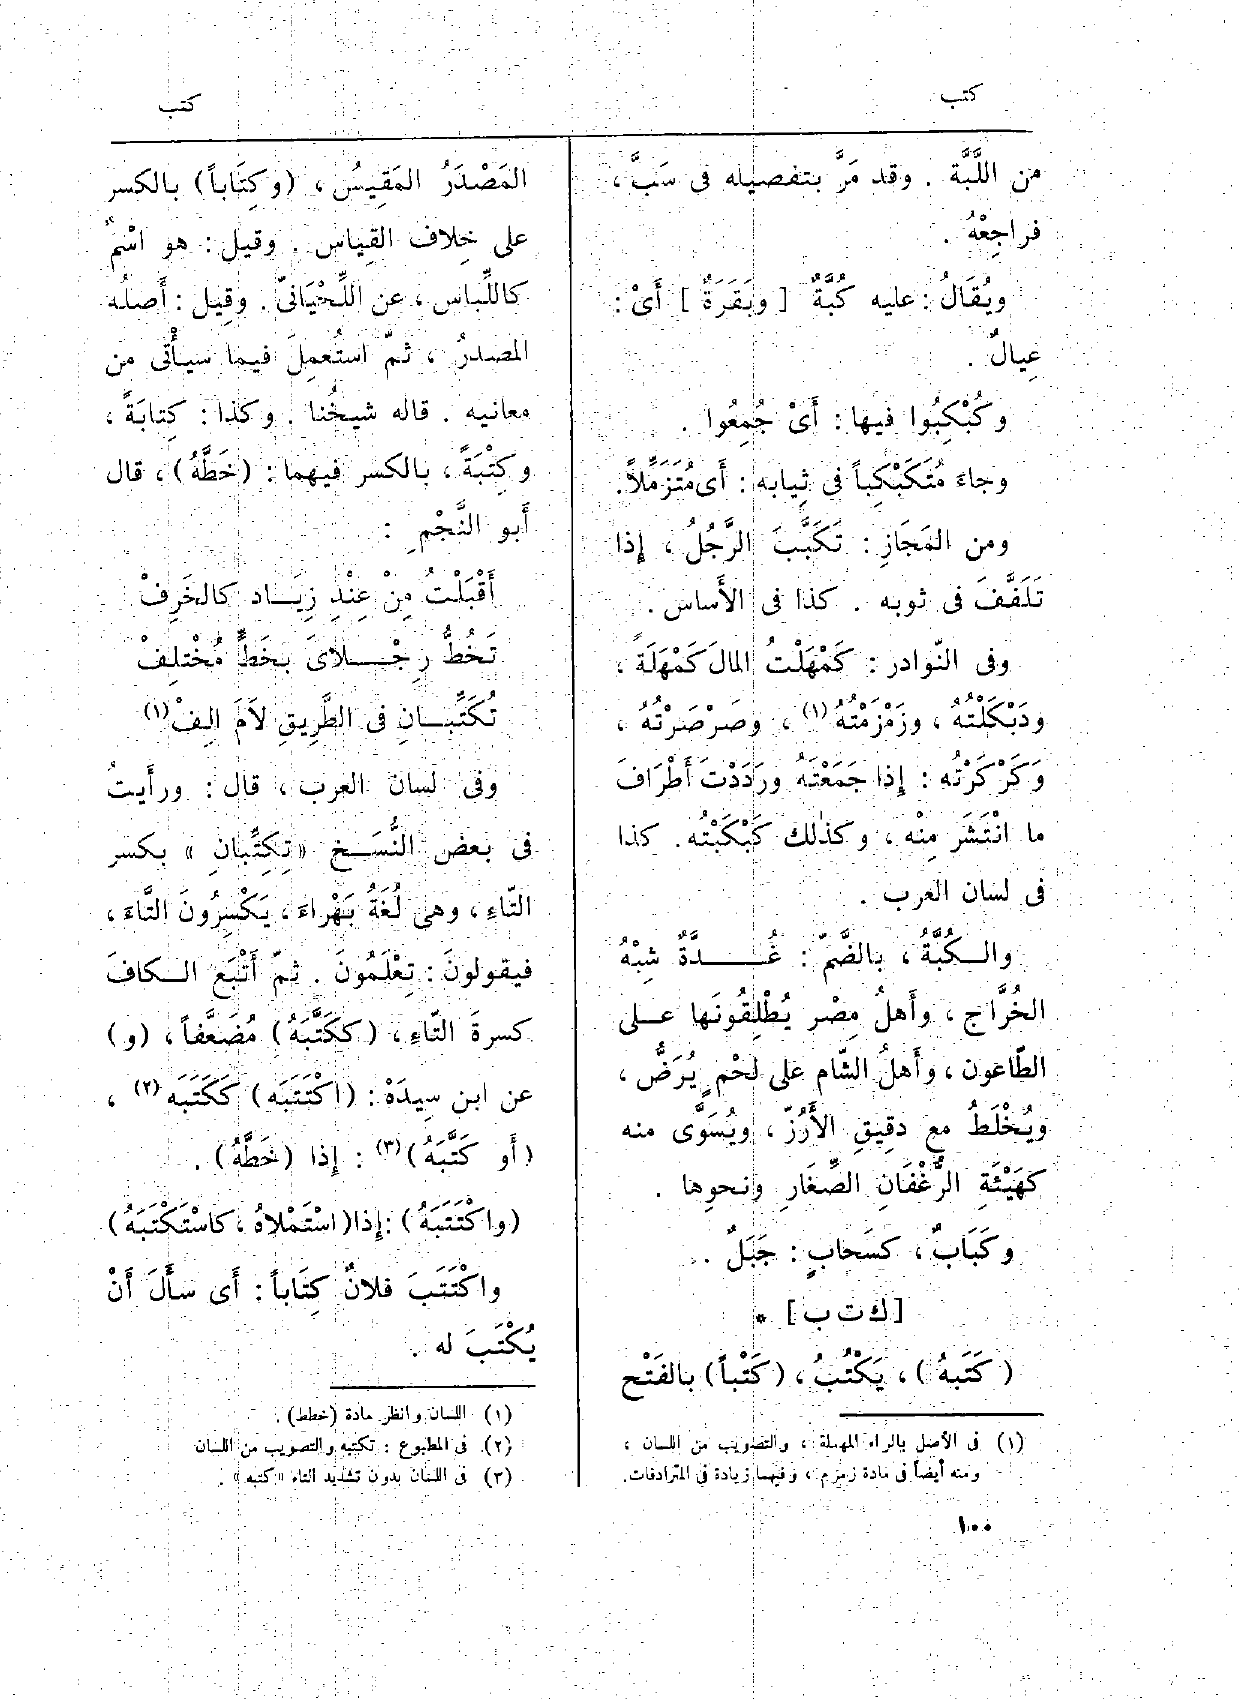 كتب
كتب
من اللَّبَّة . وقد مَرَّ بتفصيله فى سَبَّ ،
فراجِعْهُ .
ويُقَالُ : عليه كُبَّةٌ [ وبَقَرَةٌ ] أَىْ :
عِيالٌ .
وكُبْكِبُوا فيها : أَىْ جُمِعُوا .
وجاءَ مُتَكَبْكِباً فى ثِيابه : أَى مُتَزَمِّلاً .
ومن المَجَازِ : تَكَبَّبَ الرَّجُلُ ، إِذا
تَلَفَّفَ فى ثوبه . كذا فى الأَساس .
وفى النّوادر : كَمْهَلْتُ المالَ كَمْهَلَةً ،
ودَبْكَلْتُهُ ، وزَمْزَمْتُهُ (١) ، وصَرْصَرْتُهُ ،
وَكَرْكَرْتُه : إِذا جَمَعْتَهُ ورَدَدْتَ أَطْرَافَ
ما انْتَشَر مِنْه ، وكذٰلك كَبْكَبْتُه . كذا
فى لسان العرب .
والـكُبَّةُ ، بالضَّمّ : غُـدَّةٌ شِبْهُ
الخُرَّاجِ ، وأَهلُ مِصْر يُطْلِقُونَها علـى
الطّاعون ، وأَهلُ الشّام على لحْمٍ يُرَضُّ ،
ويُخْلَطُ مع دقِيقِ الأَرُزّ ، ويُسَوَّى منه
كهَيْئَةِ الرُّغْفَانِ الصِّغَارِ ونحوِها .
وكَبَابٌ ، كسَحابٍ : جَبَلٌ .
[ ك ت ب ] *
( كَتَبهُ ) ، يَكْتُبُ ، (كَتْباً) بالفَتْح
(١) فى الأصل بالراء المهملة ، والتصويب من اللسان ،
ومنه أيضاً فى مادة زمزم ، وفيهما زيادة فى المترادفات .
المَصْدَرُ المَقِيسُ ، (وكِتَاباً) بالكسر
على خِلاف القِياس . وقيل : هو اسْمٌ
كاللِّباس ، عن اللِّحْيَانىّ . وقِيل : أَصلُه
المصدرُ ، ثمّ استُعمِلَ فيما سيأْتى من
معانيه . قاله شيخُنا . وكذا : كِتابَةً ،
وكِتْبَةً ، بالكسر فيهما : (خَطَّهُ) ، قال
أَبو النَّجْمِ :
أَقْبَلْتُ مِنْ عِنْدِ زِيَـاد كالخَرِفْ
تَخُطُّ رِجْـلاىَ بخَطٍّ مُخْتلِفْ
تُكَتِّبَـانِ فى الطَّرِيقِ لاَمَ الِفْ (١)
وفى لسان العرب ، قال : ورأَيتُ
فى بعض النُّسَـخ «تِكِتِّبانِ » بكسر
التّاءِ ، وهى لُغَةُ بَهْراءَ ، يَكْسِرُونَ التَّاءَ ،
فيقولونَ : تِعْلَمُونَ . ثمّ أَتْبَعَ الـكافَ
كسرةَ التّاءِ ، (كَكَتَّبَهُ) مُضَعَّفاً ، (و)
عن ابن سِيدَهْ : (اكْتَتَبَه) كَكَتَبَه (٢) ،
(أو كَتَّبَهُ) (٣) : إِذا (خَطَّهُ) .
(واكْتَتَبَهُ) : إِذا (اسْتَمْلاهُ ، كاسْتَكْتَبَهُ)
واكْتَتَبَ فلانٌ كِتَاباً : أَى سأَلَ أَنْ
يُكْتَبَ له .
(١) اللسان وانظر مادة (خطط) .
(٢) فى المطبوع : تكتبه والتصويب من اللسان
(٣) فى اللسان بدون تشديد التاء «كتبه » .
١٠٠